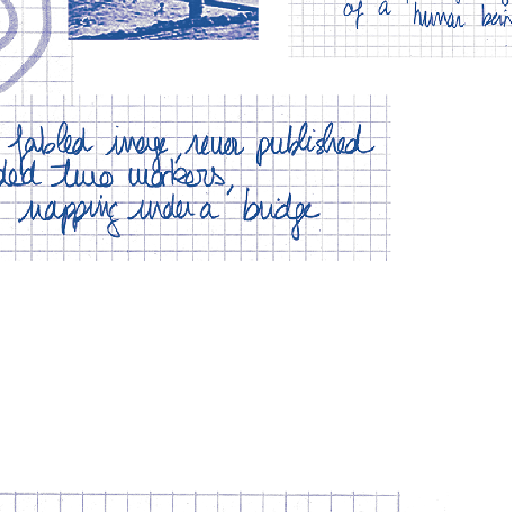 of a human bein
fabled image, never published
ded two workers,
napping under a bridge